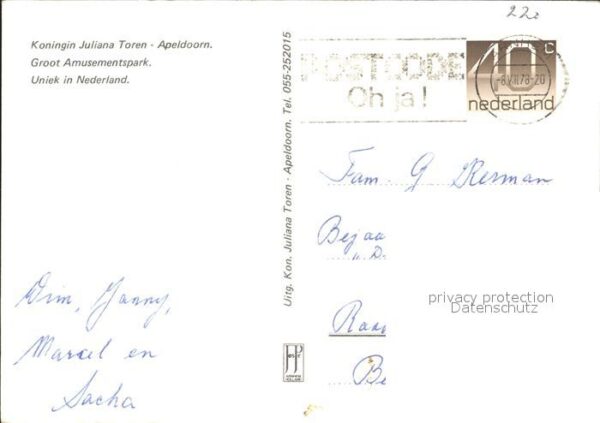 22e
Koningin Juliana Toren - Apeldoorn.
Groot Amusementspark.
Uniek in Nederland.
POSTCODE
Oh ja!
40c
-8.VIII.78-20
nederland
Uitg. Kon. Juliana Toren - Apeldoorn. Tel. 055-252015
Fam. G
Bejaa
u. D.
Raa
Be
privacy protection
Datenschutz
Wim, Janny,
Marcel en
Sacha